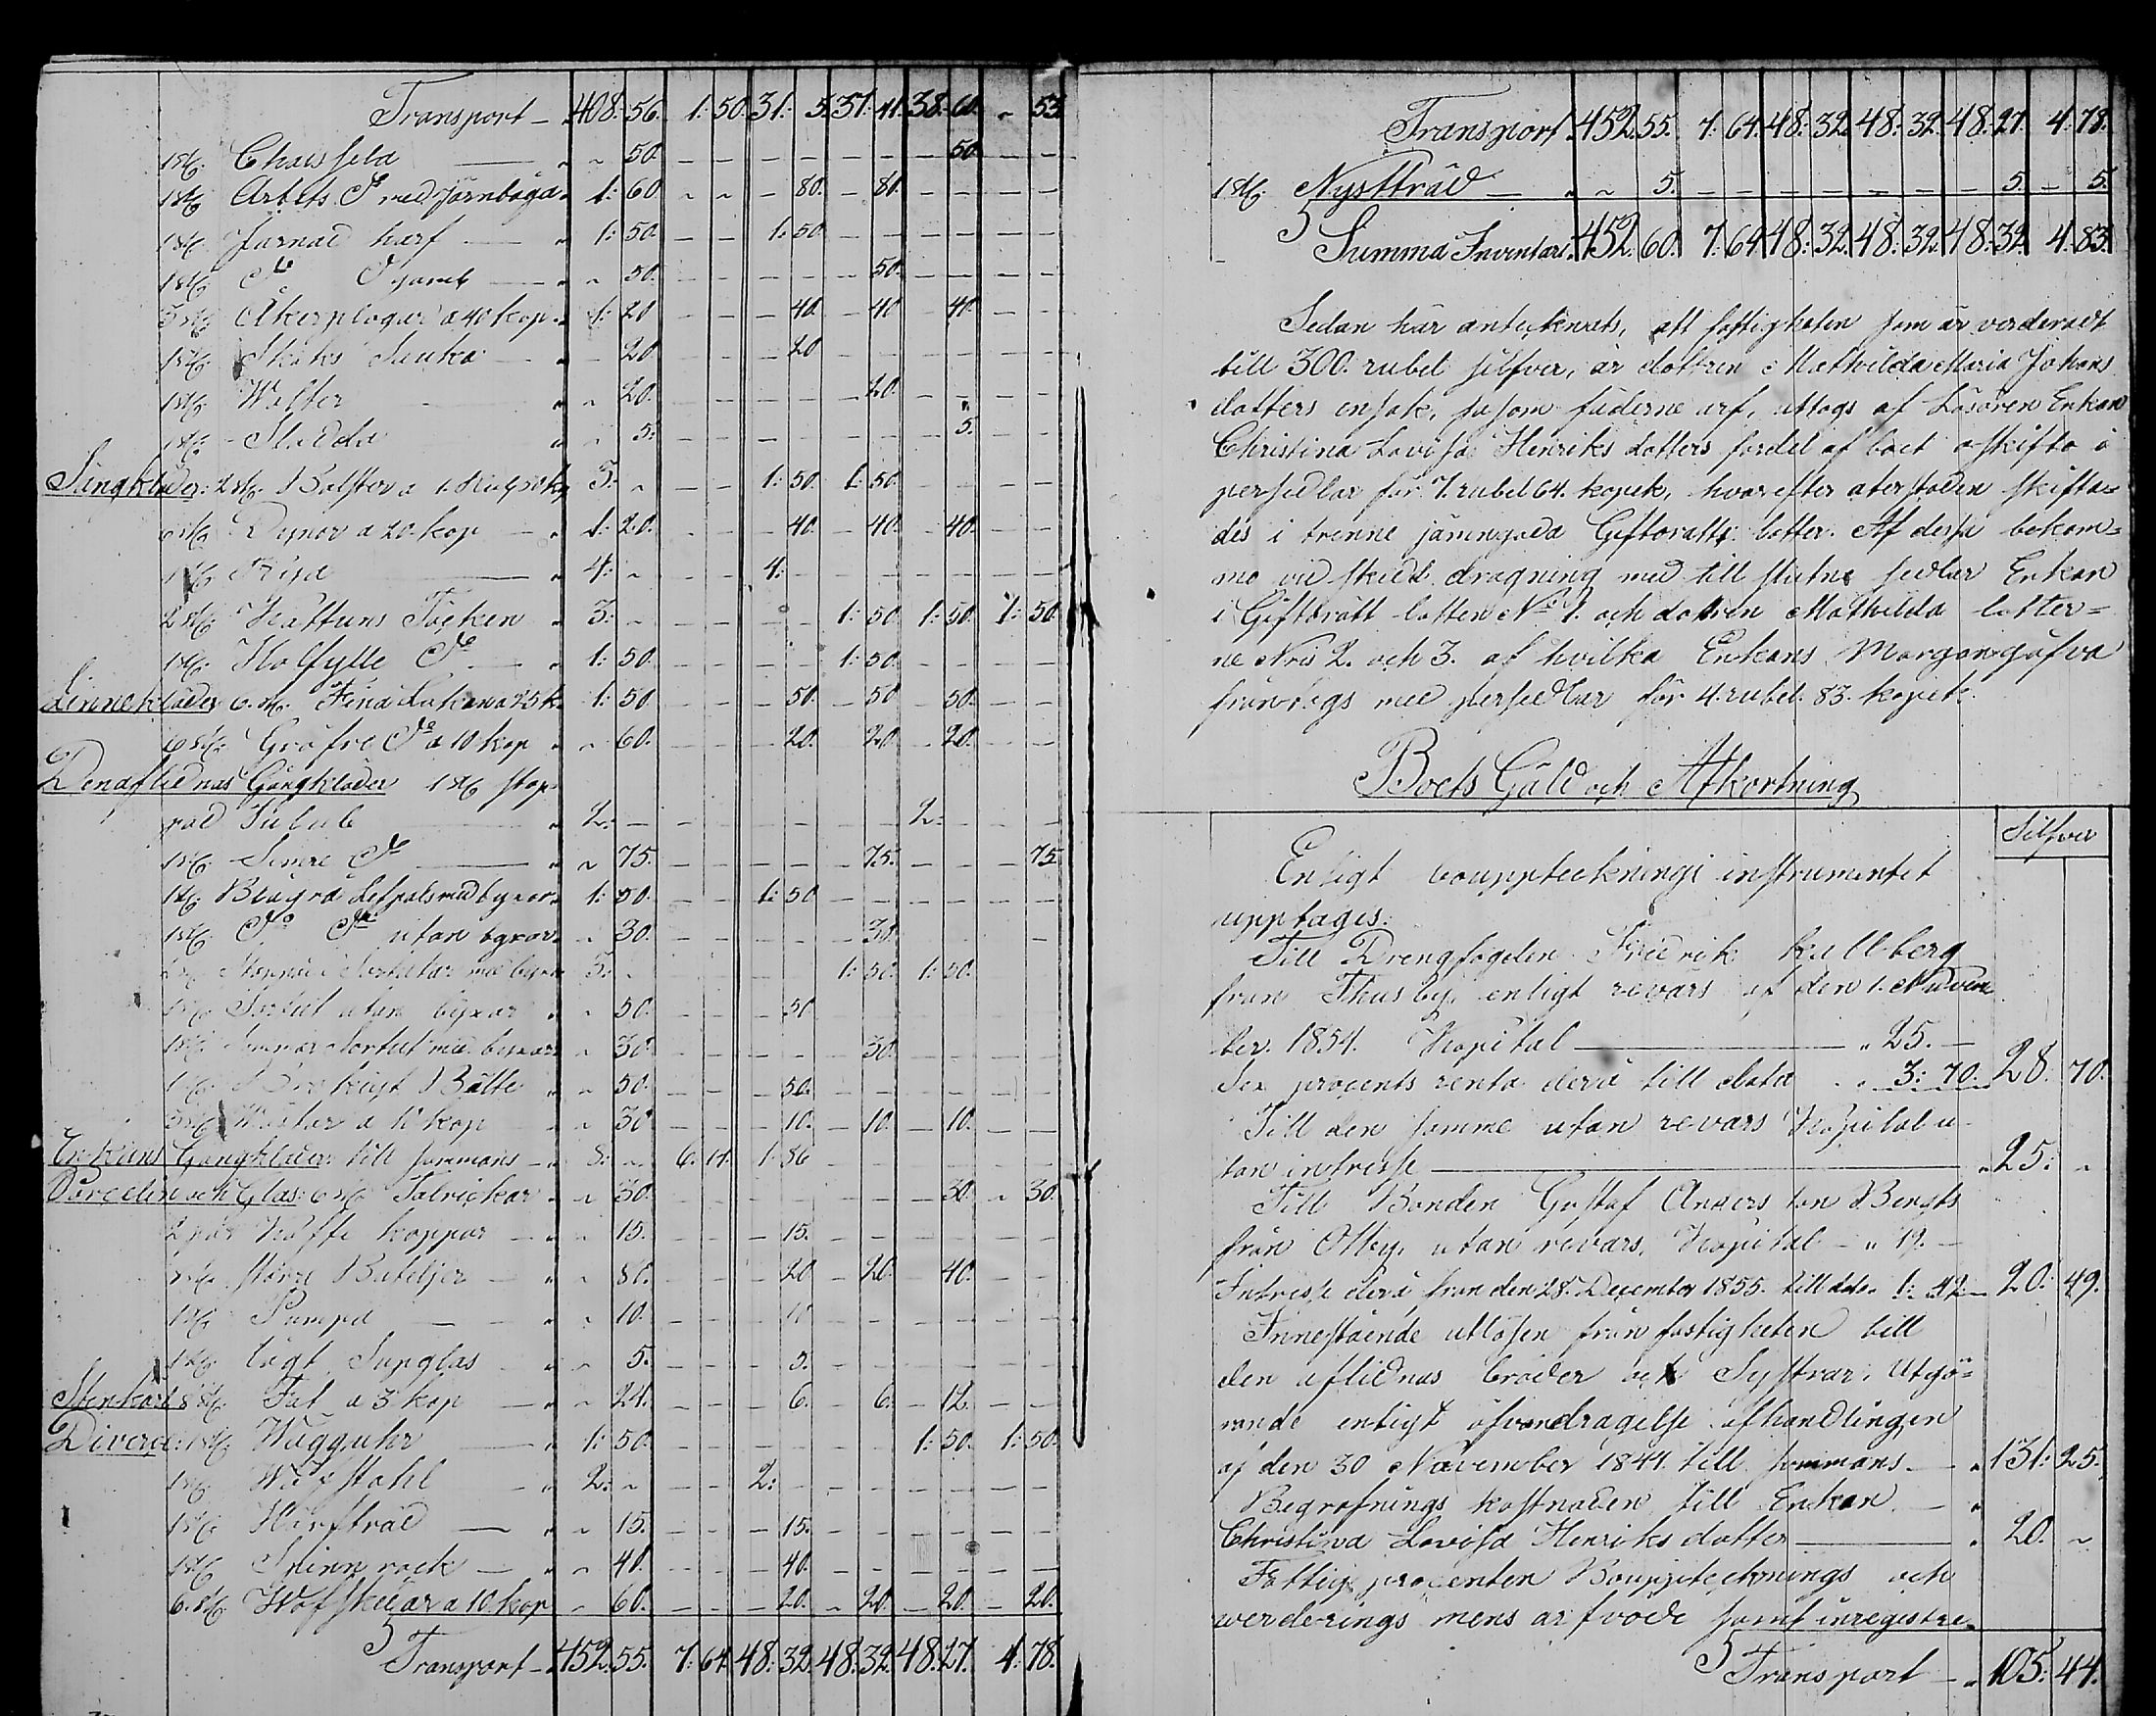 Transport 408. 56. 1: 50. 31: 5. 37: 41. 38. 60. " 53.
1 st. Chaisfela " " 50. 50.
1 st. Arbets D:o med Järnbåga " 1: 60 80. 80.
1 st. Järnad harf " 1: 50. 1: 50
1 st. D:o " 50. 50.
3 st. Åkerplogar a 40 kop. " 1: 20 40. 40 40.
1 st. 20 20
1 st. Welter " " 20. 20.
1 st. Sladda " " 5. 5.
Sängkläder: 2 st. Bolster a 1. Rub. 50 k. 3: " 1: 50. 1: 50.
6 st. Dynor a 20. kop " 1: 20. 40. 40. 40.
1 st. " 4: " 4:
2 st. Kattuns Täcken " 3: " 1: 50. 1: 50. 1: 50.
1 st. D:o " 1: 50. 1: 50.
Linnekläder 6. st. Fina Lakan a 25 k. 1: 50 50. 50 50.
6 st. Gröfre D:o a 10 kop " " 60. 20. 20 20.
Den aflidnas Gångkläder 1 st. stop-
pad " 2: 2:
1 st. Sämre D:o " " 75. 75. 75.
1 st. Blågrå med byxor " 1: 50. 1: 50
1 st. D:o D:o utan byxor " " 30. 30.
med byxor 3: " 1: 50. 1: 50.
1 st. Sortut utan byxor " " 50. 50
1 st. Sommar Sortut med byxor " 30. 30.
1 st. Bälte " " 50. 50.
3 st. a 10 kop " " 30 10. 10. 10.
Enkans Gångkläder: till sammans " 8: " 6. 14. 1: 86
Porcelin och Glas: 6 st. Talrickar " " 30. 30. " 30.
2 par Kaffe koppar " 15. 15.
större Buteljer " " 80. 20 20. 40.
1 st. Pumpa " " 10. 10
1 st. lågt Supglas " " 5. 5.
Stenkärl 8 st. Fat a 3 kop " 24. 6. 6. 12.
Diverse: 1 st. Wägguhr " 1: 50. 1: 50. 1: 50.
1 st. Wäfstohl " 2: " 2:
1 st. Härfträd " " 15. 15.
1 st. Spinnrock " " 40. 40.
6. st. Wäfskedar a 10. kop " 60. 20. 20. 20. 20.
Transport 452. 55. 7. 64. 48: 32. 48: 32. 48. 27. 4: 78.
Transport 452. 55. 7: 64. 48: 32. 48: 32. 48. 27. 4: 78.
1 st. Nystträd " " 5. 5. 5.
Summa Inventari. 452. 60. 7: 64. 48: 32. 48: 32. 48. 32. 4. 83.
Sedan här antecknats, att fastigheten som är värderadt
till 300. rubel silfver, är dottren Mathilda Maria Johans
dotters ensak, såsom fäderne arf, uttogs af Lösören Enkan
Christina Lovisa Henriks dotters fördel af boet oskifto i
persedlar för 7. rubel 64. kopek, hvarefter återstoden skifta-
des i trenne jämngoda Giftorätts lotter. Af dessa bekom-
mo vid skedd dragning med till slutna sedlar Enkan
i Giftorätt lotten No 1. och dottren Mathilda lotter-
ne Nris 2. och 3. af hvilka Enkans Morgongåfva
frånvägs med persedlar för 4. rubel. 83. kopek.
Boets Gäld och Afkortning
Silfver
Enligt bouppteckningsinstrumentet
upptages:
Till Drengfogden Fredrik Kullberg
från Thusby, enligt revärs af den 1. Novem
ber. 1854. Kapital " 25. —
Sex procents ränta derå till dato " 3: 70. 28. 70.
Till den samme utan revärs Kapital u-
tan intresse " 25: "
Till Bonden Gustaf Anders son Bengts
från Ollby, utan revärs, Kapital " 19. —
Intresse derå från den 28. December 1855. till dato 1: 49. 20: 49.
Innestående utlösen från fastigheten till
den aflidnas bröder och Systrar, Utgö-
rande enligt öfverdragelse afhandlingen
af den 30 November 1841. till sammans " 131: 25.
Begrafnings kostnaden till Enkan "
Christina Lovisa Henriks dotter " 20. "
Fattig procenten Bouppteknings och
werderings mens arfvode samt inregistre-
Transport " 105: 44.